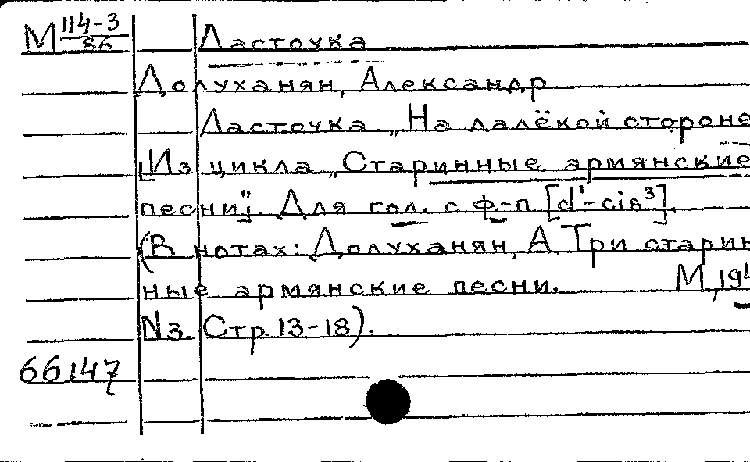 М 114-3/86 Ласточка
Долуханян, Александр
Ласточка „На далёкой стороне
[Из цикла „Старинные армянские
песни"]. Для гол. с ф-п [d'-cis³].
(В нотах: Долуханян, А. Три старин
ные армянские песни. М, 19
N3 Стр 13-18).
66147